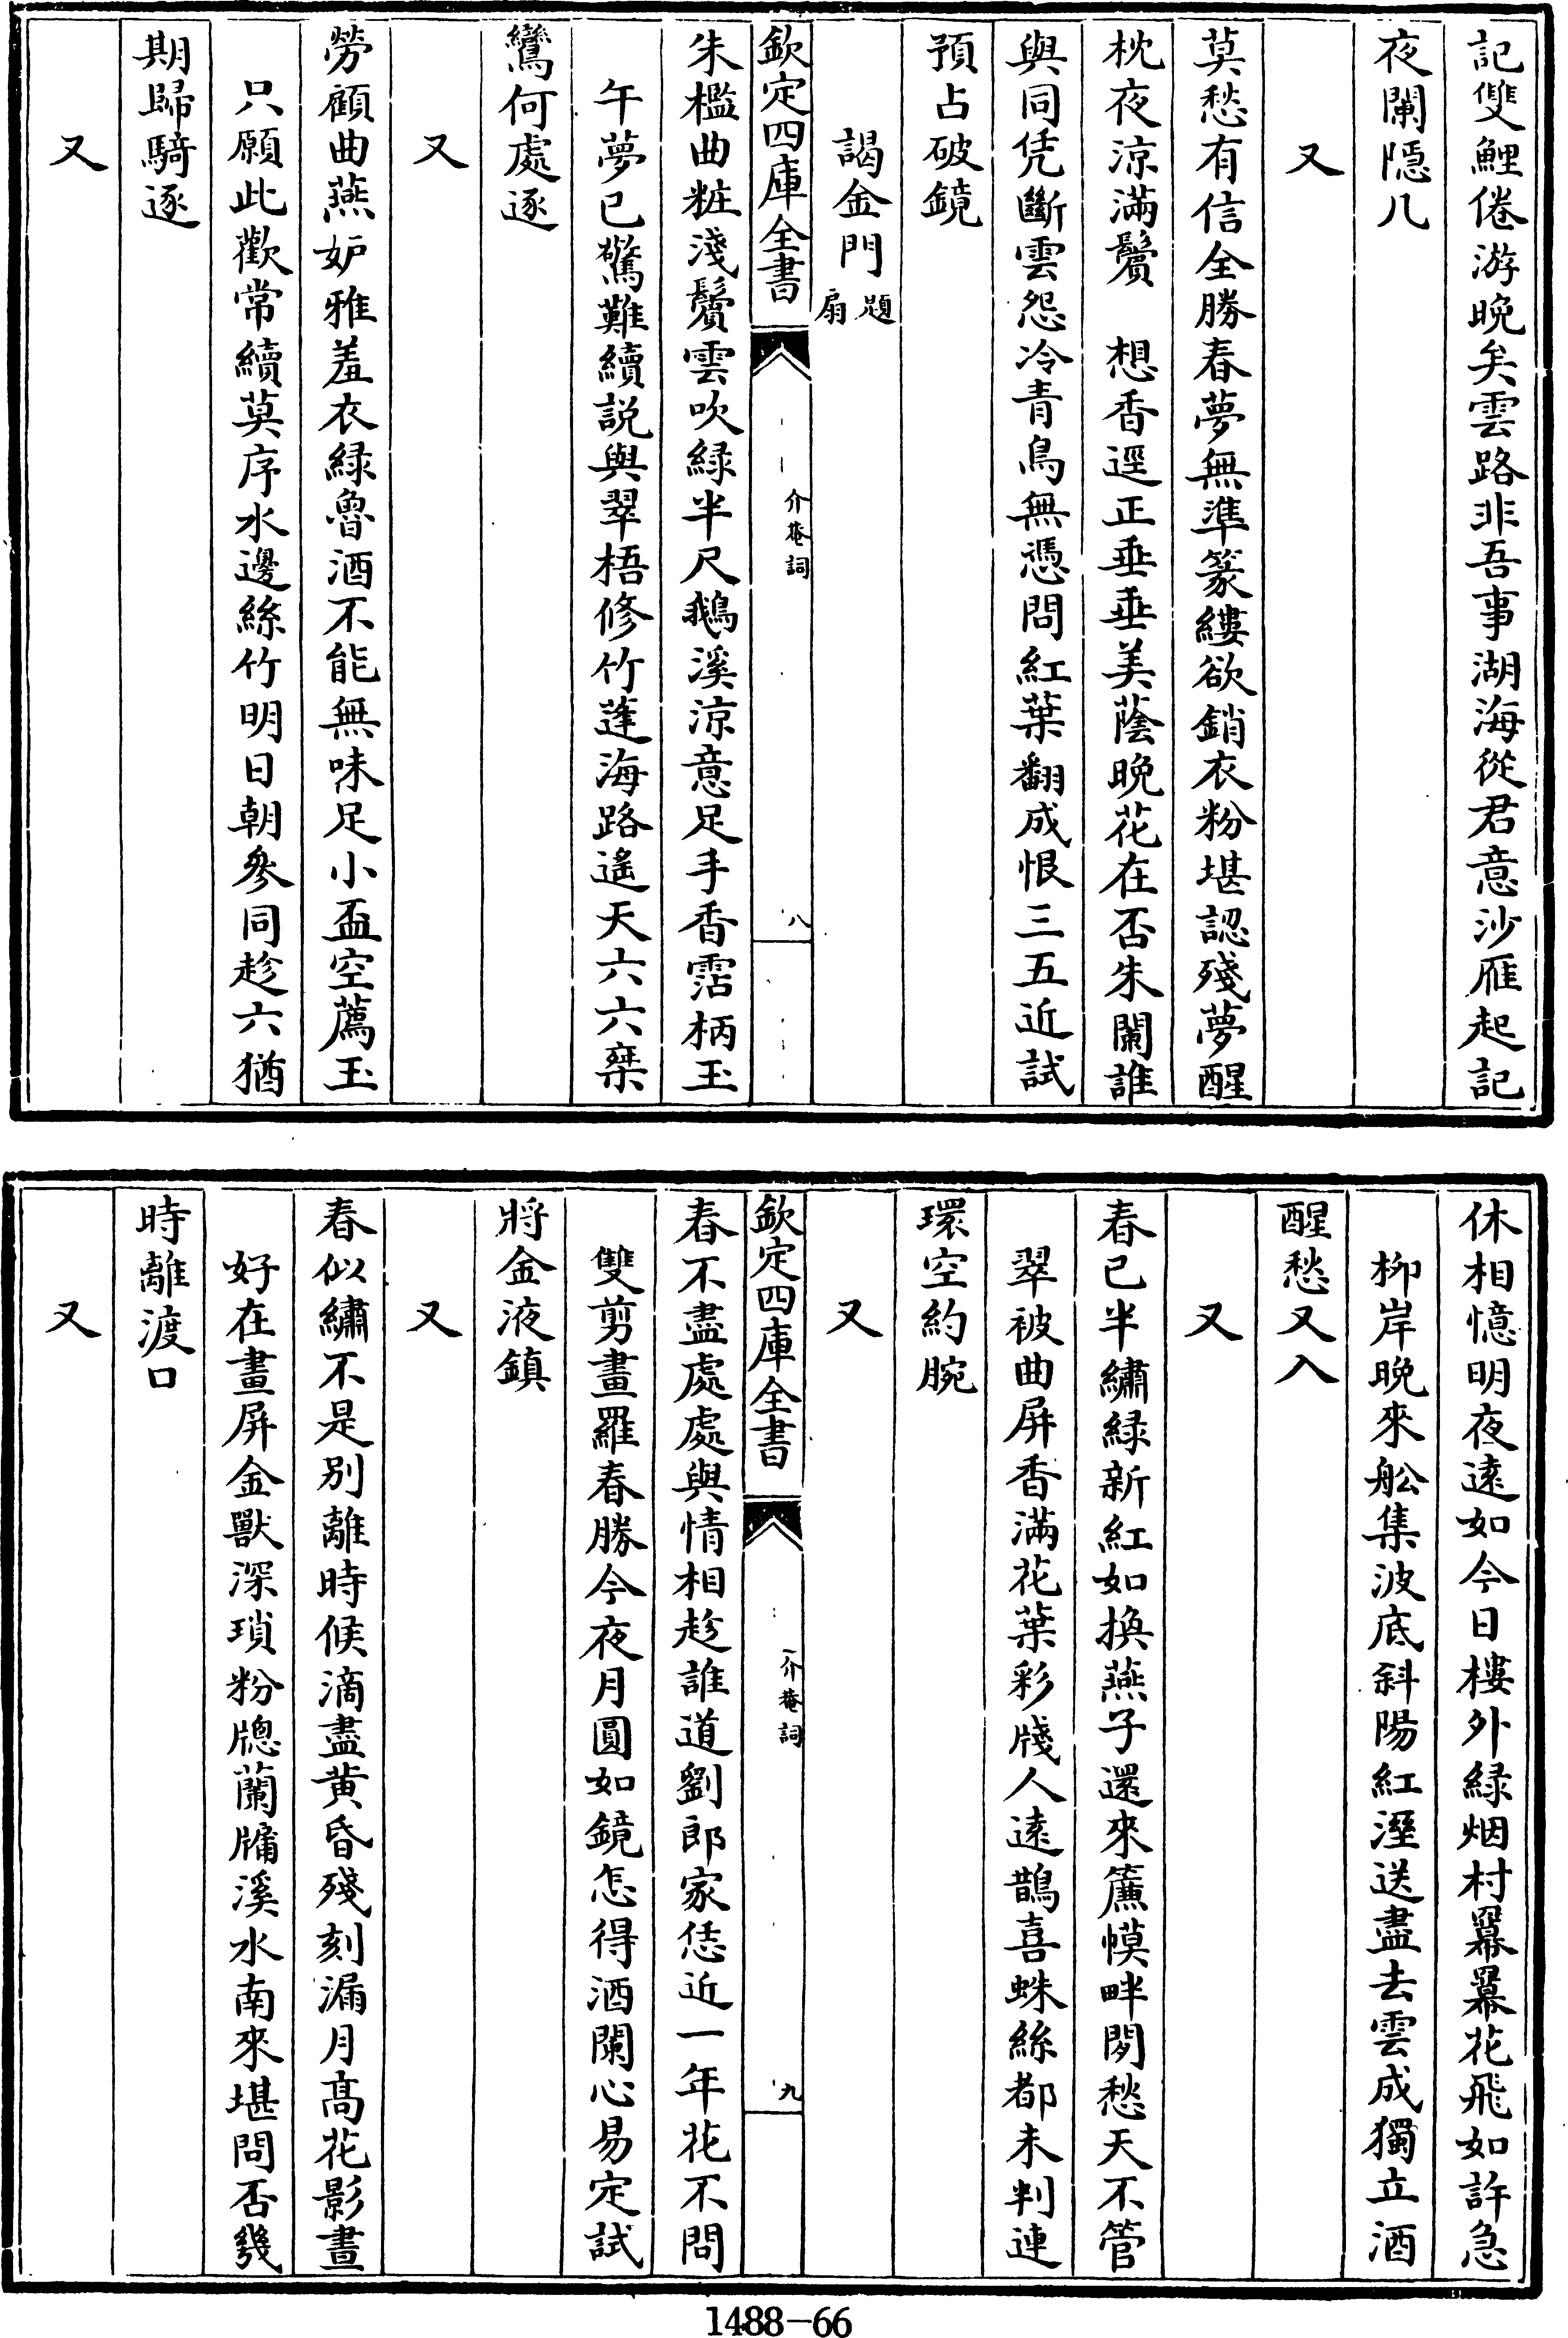 記雙鯉倦游晚矣雲路非吾事湖海從君意沙雁起記
夜闌隱几
又
莫愁有信全勝春夢無準篆縷欲銷衣粉堪認殘夢醒
枕夜涼滿鬢　想香逕正垂垂美蔭晚花在否朱闌誰
與同凭斷雲怨冷青鳥無憑問紅葉翻成恨三五近試
預占破鏡
謁金門題扇
欽定四庫全書
介菴詞
八
朱檻曲粧淺鬢雲吹緑半尺鵝溪涼意足手香霑柄玉
午夢已驚難續説與翠梧修竹蓬海路遙天六六椉
鸞何處逐
又
勞顧曲燕妒雅羞衣緑魯酒不能無味足小盃空薦玉
只願此歡常續莫序水邊絲竹明日朝參同趁六猶
期歸騎逐
又
休相憶明夜遠如今日樓外緑烟村羃羃花飛如許急
栁岸晚來舩集波底斜陽紅溼送盡去雲成獨立酒
醒愁又入
又
春已半繡緑新紅如換燕子還來簾幙畔閙愁天不管
翠被曲屏香滿花葉彩牋人遠鵲喜蛛絲都未判連
環空約腕
又
欽定四庫全書
介菴詞
九
春不盡處處與情相趁誰道劉郎家恁近一年花不問
雙剪畫羅春勝今夜月圓如鏡怎得酒闌心易定試
將金液鎮
又
春似繡不是别離時候滴盡黄昏殘刻漏月髙花影晝
好在畫屏金獸深瑣粉牕蘭牗溪水南來堪問否幾
時離渡口
又
1488-66